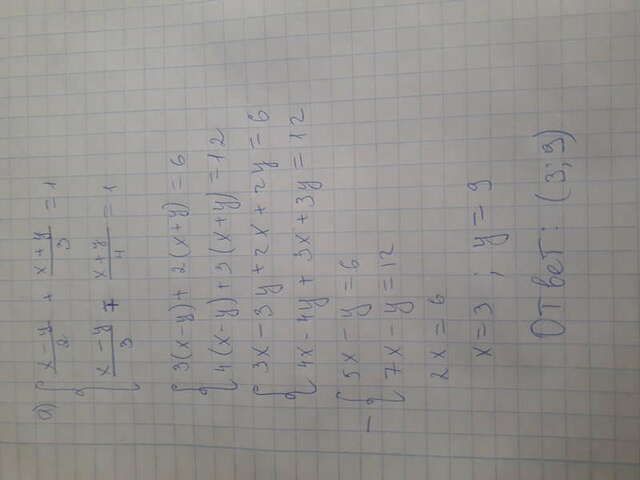 а) { (x - y)/2 + (x + y)/3 = 1
(x - y)/3 + (x + y)/4 = 1
{ 3(x-y) + 2(x+y) = 6
4(x-y) + 3(x+y) = 12
{ 3x - 3y + 2x + 2y = 6
4x - 4y + 3x + 3y = 12
- { 5x - y = 6
7x - y = 12
2x = 6
x = 3 ; y = 9
Ответ: (3; 9)